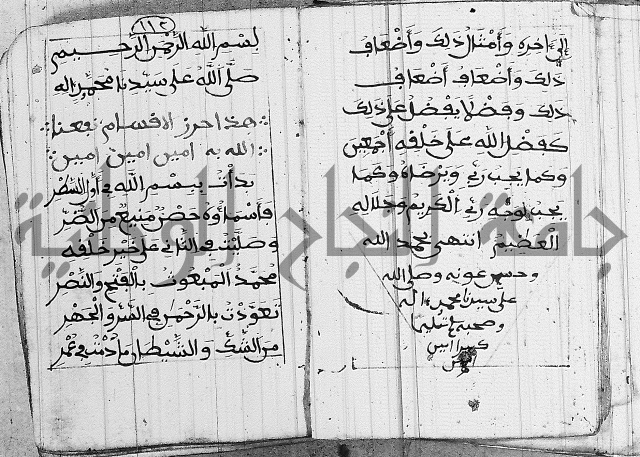 إلى آخره وأمثال ذلك وأضعاف
ذلك وأضعاف أضعاف
ذلك وفضلا يفضل على ذلك
كفضل الله على خلفه أجمعين
وكما يحب ربي ويرضاه وكما
يحب لوجه ربي الكريم وجلاله
العظيم انتهى بحمد الله
وحسن عونه وصلى الله
على سيدنا محمد وآله
وصحبه وسلم تسليما
كثيرا
١١٢
بسم الله الرحمن الرحيم
صلى الله على سيدنا محمد وآله
هذا حرز الاقسام نفعنا
الله به امين امين امين
بدأت ببسم الله في أول السطر
فأسماؤه حصن منيع من الضر
وصليت في الثاني على خير خلفه
محمد المبعوث بالفتح والنصر
تعوذت بالرحمن في السر والجهر
من الشك والشيطان ما دمت في عمر
جامعة النجاح الوطنية